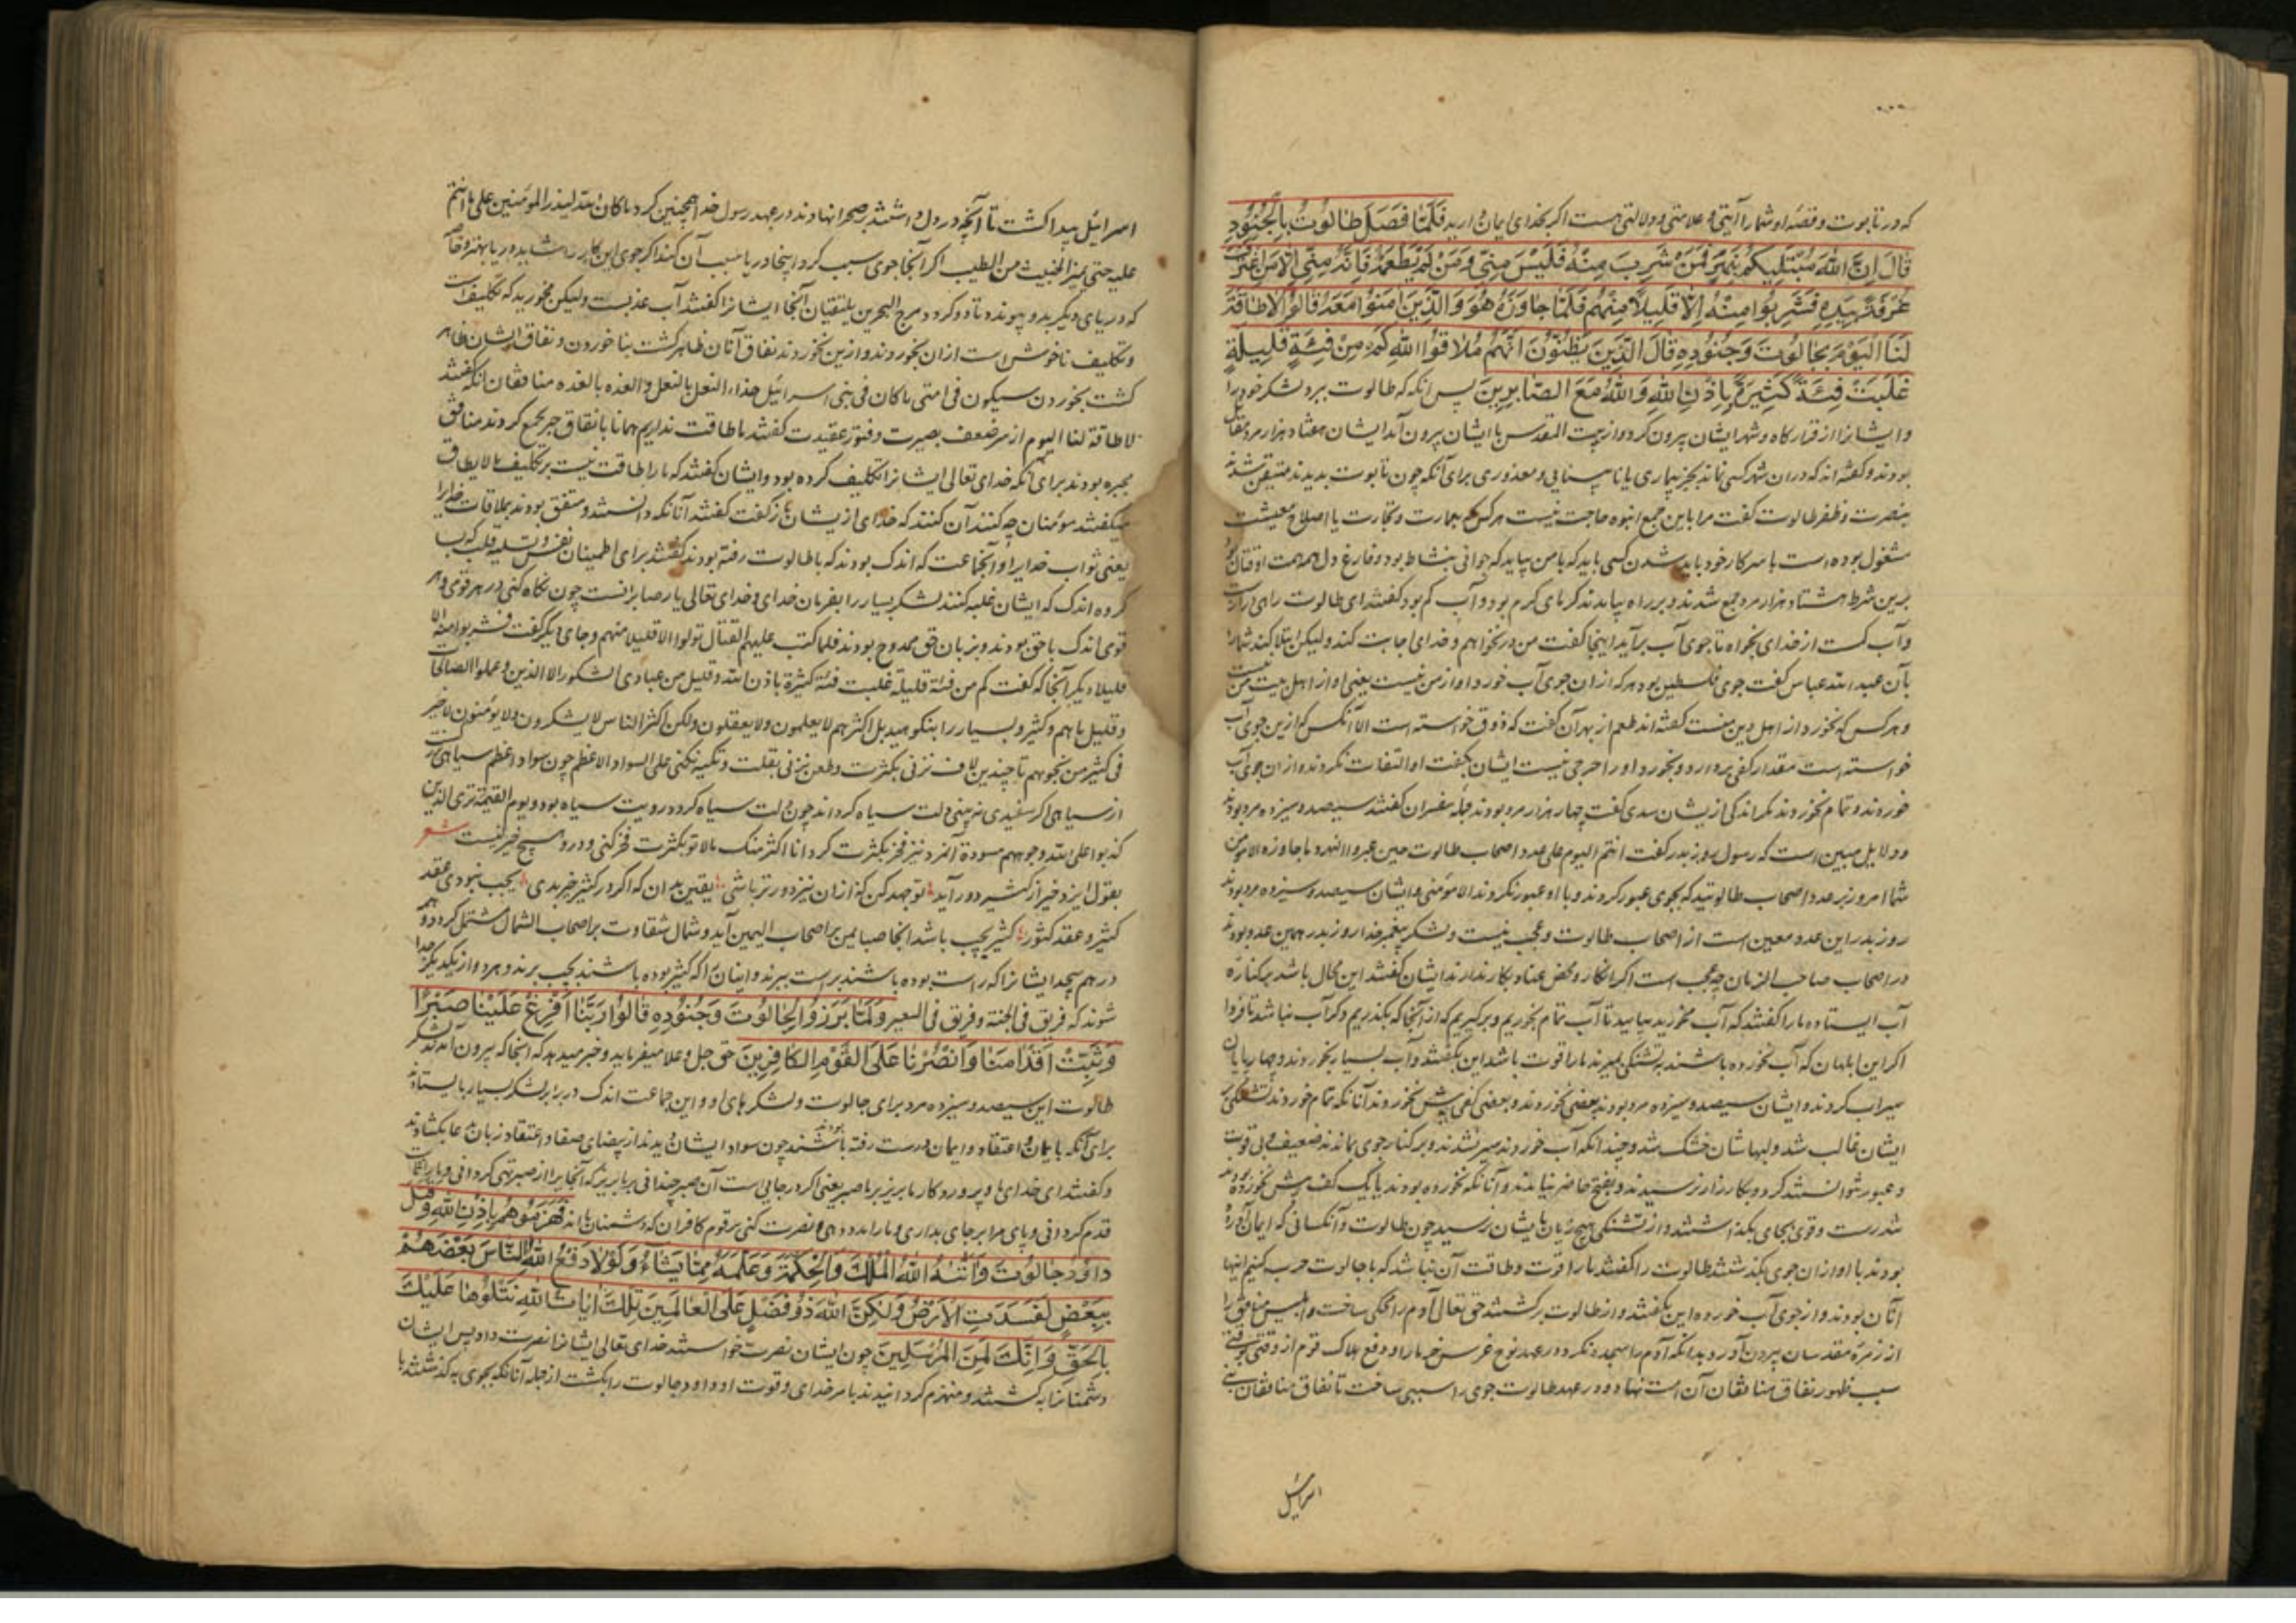 که در تابوت و قصه او شما را آیتی و علامتی و دلالتی هست اکر بخدای ایمان دارید فَلَمّا فَصَلَ طالُوتُ بِالجُنُودِ
قالَ اِنَّ اللهَ مُبتَلِیکُم بِنَهَرٍ فَمَن شَرِبَ مِنهُ فَلَیسَ مِنّی وَمَن لَم یَطعَمهُ فَاِنَّهُ مِنّی اِلّا مَنِ اغتَرَفَ
غُرفَةً بِیَدِهِ فَشَرِبُوا مِنهُ اِلّا قَلِیلاً مِنهُم فَلَمّا جاوَزَهُ هُوَ وَالَّذِینَ امَنُوا مَعَهُ قالُوا لاطاقَةَ
لَنَا الیَومَ بِجالُوتَ وَجُنُودِهِ قالَ الَّذِینَ یَظُنُّونَ اَنَّهُم مُلاقُوا اللهِ کَم مِن فِئَةٍ قَلِیلَةٍ
غَلَبَت فِئَةً کَثِیرَةً بِاِذنِ اللهِ وَاللهُ مَعَ الصّابِرِینَ پس انکه که طالوت ببرد لشکر خود را
و ایشانرا از قرارکاه و شهر ایشان بیرون کرد و از بیت المقدس با ایشان بیرون آمد ایشان هفتاد هزار مرد مقاتل
بودند و کفته اند که در ان شهر کسی نماند بجز بیماری یا نابینایی و معذوری برای آنکه چون تابوت بدیدند متیقن شدند
بنصرت و ظفر طالوت کفت مرا باین جمع انبوه حاجت نیست هر کس که بعمارت و تجارت یا اصلاح معیشت
مشغول بوده است با سر کار خود باید شدن کسی باید که با من بیاید که جوانی بنشاط بود و فارغ دل
برین شرط هشتاد هزار مرد جمع شدند و بر راه بیامدند کرمای کرم بود و آب کم بود کفتند ای طالوت
و آب کمست از خدای بخواه تا جوی آب برآید اینجا کفت من درنخواهم و خدای اجابت کند ولیکن ابتلا کند شما را
بآن عبد الله عباس کفت جوی فلسطین بود هر که از ان جوی آب خورد او از من نیست یعنی او از اهل بیت من نیست
و هر کس که نخورد از اهل دین منست کفته اند طعم از بهر آن کفت که ذوق خواسته است الا آنکس که ازین جوی آب
خواسته است مقدار کفی بردارد و بخورد او را حرجی نیست ایشان بکفت او التفات نکردند و از ان جوی آب
خوردند و تمام نخوردند مکر اندکی ازیشان سدی کفت چهار هزار مرد بودند جمله مفسران کفتند سیصد و سیزده مرد بودند
و دلایل مبین است که رسول روز بدر کفت انتم الیوم علی عدد اصحاب طالوت حین عبروا النهر و ما جاوزه الا مؤمن
شما امروز بر عدد اصحاب طالوتید که بجوی عبور کردند و با او عبور نکردند الا مؤمنی و ایشان سیصد و سیزده مرد بودند
روز بدر این عدد معین است از اصحاب طالوت و عجب نیست و لشکر پیغمبر خدا روز بدر همین عدد بودند
در اصحاب صاحب الزمان چه عجب است اکر انکار و محض عناد بکار ندارند ایشان کفتند این محال باشد بر کناره
آب ایستاده ما را کفتند که آب مخورید بیایید تا آب تمام بخوریم و برکیریم که از آنجا که بکذریم دکر آب نباشد تا فردا
اکر این ابلهان که آب نخورده باشند بتشنکی بمیرند ما را قوت باشد این بکفتند و آب بسیار بخوردند و چهارپایان
سیراب کردند و ایشان سیصد و سیزده مرد بودند بعضی نخوردند و بعضی کفی بیش نخوردند آنانکه تمام خوردند تشنکی بر
ایشان غالب شد و لبهاشان خشک شد و چندانکه آب خوردند سیر نشدند و بر کنار جوی بماندند ضعیف و بی قوت
و عبور نتوانستند کرد و بکارزار نرسیدند و بفتح حاضر نیامدند و آنانکه نخورده بودند یا یک کف بیش نخورده بودند
تندرست و قوی بجای بکذاشتند و از تشنکی هیچ زیان بایشان نرسید چون طالوت و آنکسانی که ایمان آورده
بودند با او از ان جوی بکذشتند طالوت را کفتند ما را قوت و طاقت آن نباشد که با جالوت حرب کنیم اینها
آنان بودند و از جوی آب خورده این بکفتند و از طالوت برکشتند حق تعالی آدم را محکی ساخت و ابلیس منافق را
از زمره مقدسان بیرون آورد بدانکه آدم را سجده نکرد و در عهد نوح غرس خرما را و دفع هلاک قوم از وقتی بوقتی
سبب ظهور نفاق منافقان آن است نهاد و در عهد طالوت جوی را سببی ساخت تا نفاق منافقان بنی
اسرائیل
اسرائیل پیدا کشت تا آنچه در دل داشتند بر صحرا نهادند و در عهد رسول خدا همچنین کرد ما کان الله لیذر المؤمنین علی ما انتم
علیه حتی یمیز الخبیث من الطیب اکر آنجا جوی سبب کرد اینجا دریا سبب آن کند اکر جوی این کار را شاید دریا بهتر و خاصه
که دریای دیکر بدو پیوندد تا دو کردد مرج البحرین یلتقیان آنجا ایشانرا کفتند آب عذبست ولیکن مخورید که تکلیف است
و تکلیف ناخوش است ازان بخوردند و ازین نخوردند نفاق آنان ظاهر کشت بناخوردن و نفاق ایشان ظاهر
کشت بخوردن سیکون فی امتی ما کان فی بنی اسرائیل حذاء النعل بالنعل و القذه بالقذه منافقان آنکه کفتند
لا طاقة لنا الیوم از سر ضعف بصیرت و فتور عقیدت کفتند ما طاقت نداریم همانا با نفاق جبر جمع کردند منافق
مجبره بودند برای آنکه خدای تعالی ایشانرا تکلیف کرده بود و ایشان کفتند که ما را طاقت نیست بر تکلیف ما لا یطاق
میکفتند مؤمنان چه کنند آن کنند که خدای ازیشان باز کفت کفتند آنانکه دانستند و متفق بودند بملاقات خدایرا
یعنی ثواب خدایرا و آنجماعت که اندک بودند که با طالوت رفته بودند کفتند برای اطمینان نفس و تسلیه قلب که بسا
کروه اندک که ایشان غلبه کنند لشکر بسیار را بفرمان خدای و خدای تعالی یار صابرانست چون نکاه کنی در هر قومی و هر
قومی اندک با حق بودند و بزبان حق ممدوح بودند فلما کتب علیهم القتال تولوا الا قلیلا منهم و جای دیکر کفت فشربوا منه الا
قلیلا دیکر آنجا که کفت کم من فئة قلیلة غلبت فئة کثیرة باذن الله و قلیل من عبادی الشکور الا الذین و عملوا الصالحات
و قلیل ما هم و کثیر و بسیار را بنکوهید بل اکثرهم لا یعلمون و لا یعقلون ولکن اکثر الناس لا یشکرون و لا یؤمنون لا خیر
فی کثیر من نجویهم تا چند این لاف نزنی بکثرت و طعن نزنی بقلت و تکیه نکنی علی السواد الاعظم چون سواد اعظم سیاهی
از سیاهی اکر سفیدی نه بینی دلت سیاه کرداند چون دلت سیاه کردد رویت سیاه بود و یوم القیمة تری الذین
کذبوا علی الله وجوههم مسودة آنمرد نیز فخر بکثرت کرد انا اکثر منک مالا تو بکثرت فخر کنی و درو هیچ خیر نیست شعر
بقول ایزد خیر از کثیر دور آید تو جهد کن که ازان نیز دورتر باشی یقین بدان که اکر در کثیر خیر بدی
کثیر و عقد کثور کثیر بچپ باشد آنجا صبا یمین بر اصحاب الیمین آید و شمال شقاوت بر اصحاب الشمال مشتمل کردد و
در هم پیچد ایشانرا که راست بوده باشند براست ببرند و اینان را که کثیر بوده باشند بچپ برند و هر دو از یکدیکر جدا
شوند که فریق فی الجنة و فریق فی السعیر وَلَمّا بَرَزُوا لِجالُوتَ وَجُنُودِهِ قالُوا رَبَّنا اَفرِغ عَلَینا صَبراً
وَثَبِّت اَقدامَنا وَانصُرنا عَلَی القَومِ الکافِرِینَ حق جل و علا میفرماید و خبر میدهد که آنجا که بیرون آمدند لشکر
طالوت این سیصد و سیزده مرد برای جالوت و لشکرهای او و این جماعت اندک در برابر لشکر بسیار بایستادند
برای آنکه با یمان و اعتقاد و ایمان درست رفته بودند چون سواد ایشان دیدند از بیضای صفا و اعتقاد زبان بدعا بکشادند
و کفتند ای خدای ما و پروردکار ما بریز بر ما صبر یعنی اکر در جایی است آن صبر چندانی بر ما بریز که آنجا یرا از صبر تهی کردانی و ما را ثابت
قدم کردانی و پای ما را بر جای بداری و ما را مدد دهی و نصرت کنی بر قوم کافران که دشمنان ما اند فَهَزَمُوهُم بِاِذنِ اللهِ وَقَتَلَ
داوُدُ جالُوتَ وَاتاهُ اللهُ المُلکَ وَالحِکمَةَ وَعَلَّمَهُ مِمّا یَشاءُ وَلَولا دَفعُ اللهِ النّاسَ بَعضَهُم
بِبَعضٍ لَفَسَدَتِ الاَرضُ وَلکِنَّ اللهَ ذُو فَضلٍ عَلَی العالَمِینَ تِلکَ ایاتُ اللهِ نَتلُوها عَلَیکَ
بِالحَقِّ وَاِنَّکَ لَمِنَ المُرسَلِینَ چون ایشان نصرت خواستند خدای تعالی ایشانرا نصرت داد پس ایشان
دشمنانرا بکشتند و منهزم کردانیدند بامر خدای و قوت او و داود جالوت را بکشت از جمله آنانکه بجوی بکذشتند با